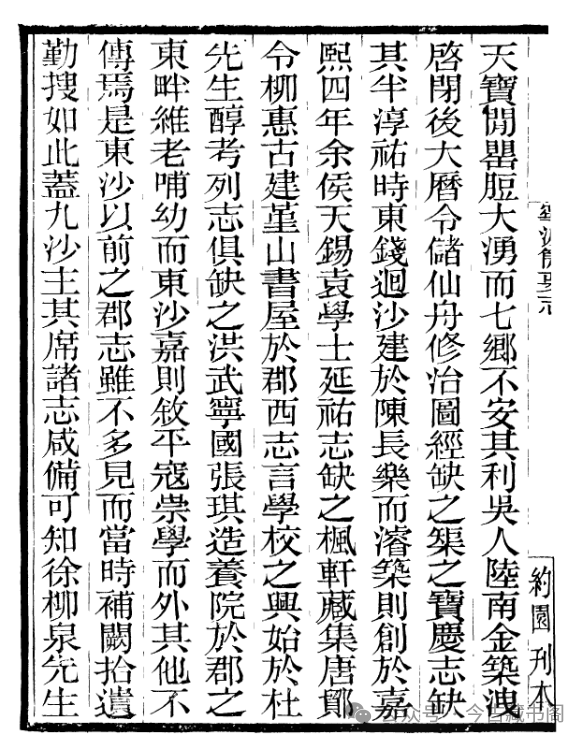 天寶閒罌脰大湧而七鄉不安其利吳人陸南金築洩
啓閉後大曆令儲仙舟修治圖經缺之榘之寶慶志缺
其半淳祐時東錢迴沙建於陳長樂而濬築則創於嘉
熙四年余侯天錫袁學士延祐志缺之楓軒藏集唐鄮
令柳惠古建堇山書屋於郡西志言學校之興始於杜
先生醇考列志俱缺之洪武寧國張琪造養院於郡之
東畔維老哺幼而東沙嘉則敘平寇崇學而外其他不
傳焉是東沙以前之郡志雖不多見而當時補闕拾遺
勤搜如此蓋九沙主其席諸志咸備可知徐柳泉先生
約園刊本